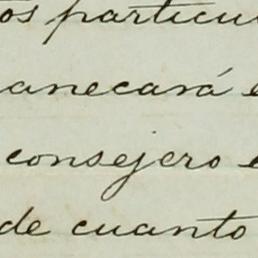 os particu
anecará e
consejero e
de cuanto